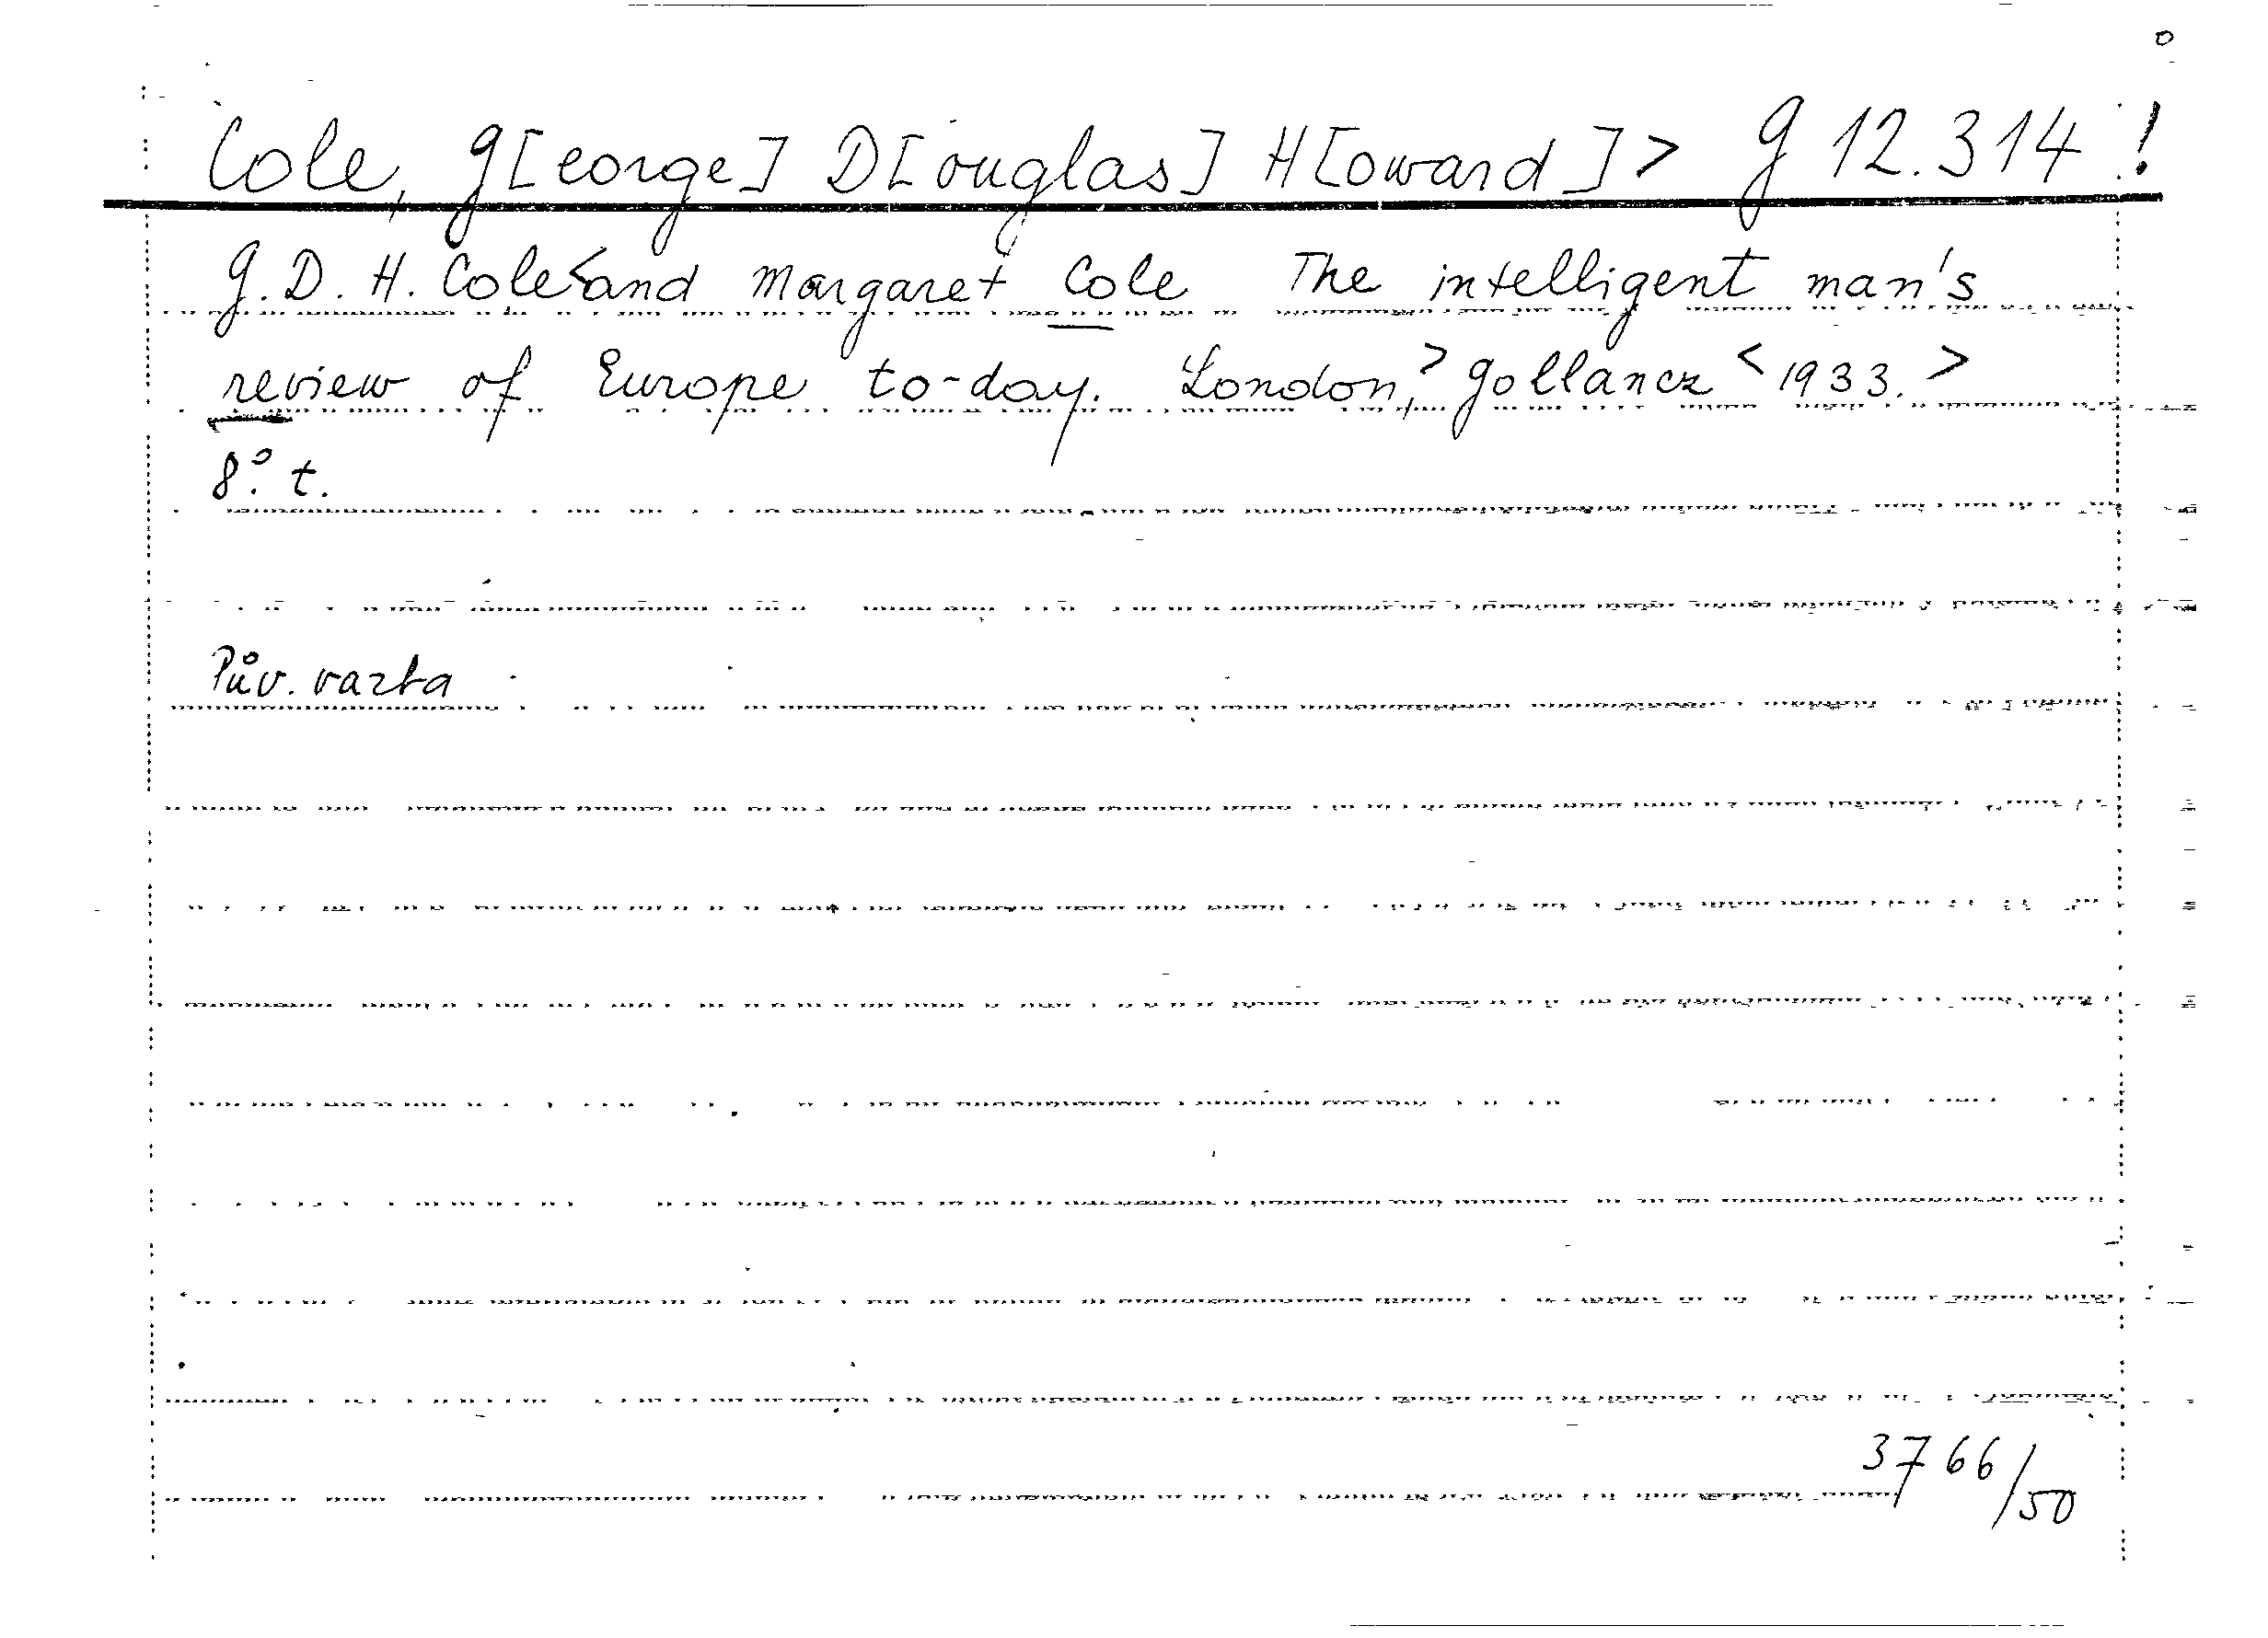 Cole, G[eorge] D[ouglas] H[oward]> G 12.314!
G. D. H. Cole<and Margaret Cole The intelligent man's
review of Europe to-day. London,> Gollancz <1933.>
8°. t.
Pův. vazba
3766/50